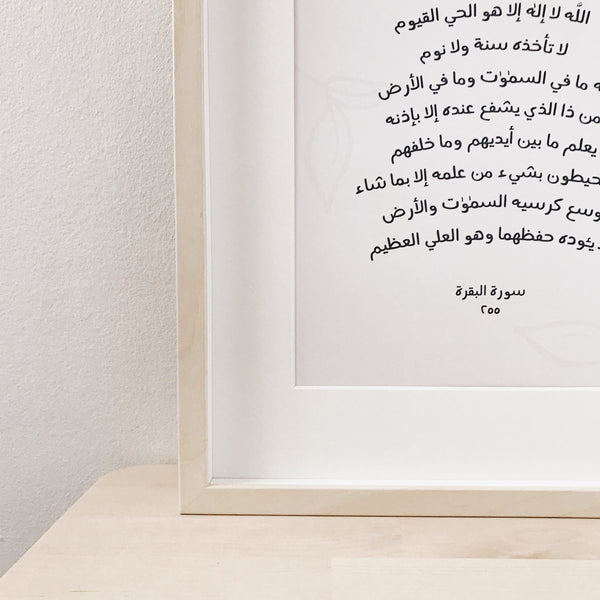 اللّه لا إله إلا هو الحي القيوم
لا تأخذه سنة ولا نوم
ما في السموت وما في الأرض
من ذا الذي يشفع عنده إلا بإذنه
يعلم ما بين أيديهم وما خلفهم
يحيطون بشيء من علمه إلا بما شاء
وسع كرسيه السموت والأرض
يئوده حفظهما وهو العلي العظيم
سورة البقرة
٢٥٥